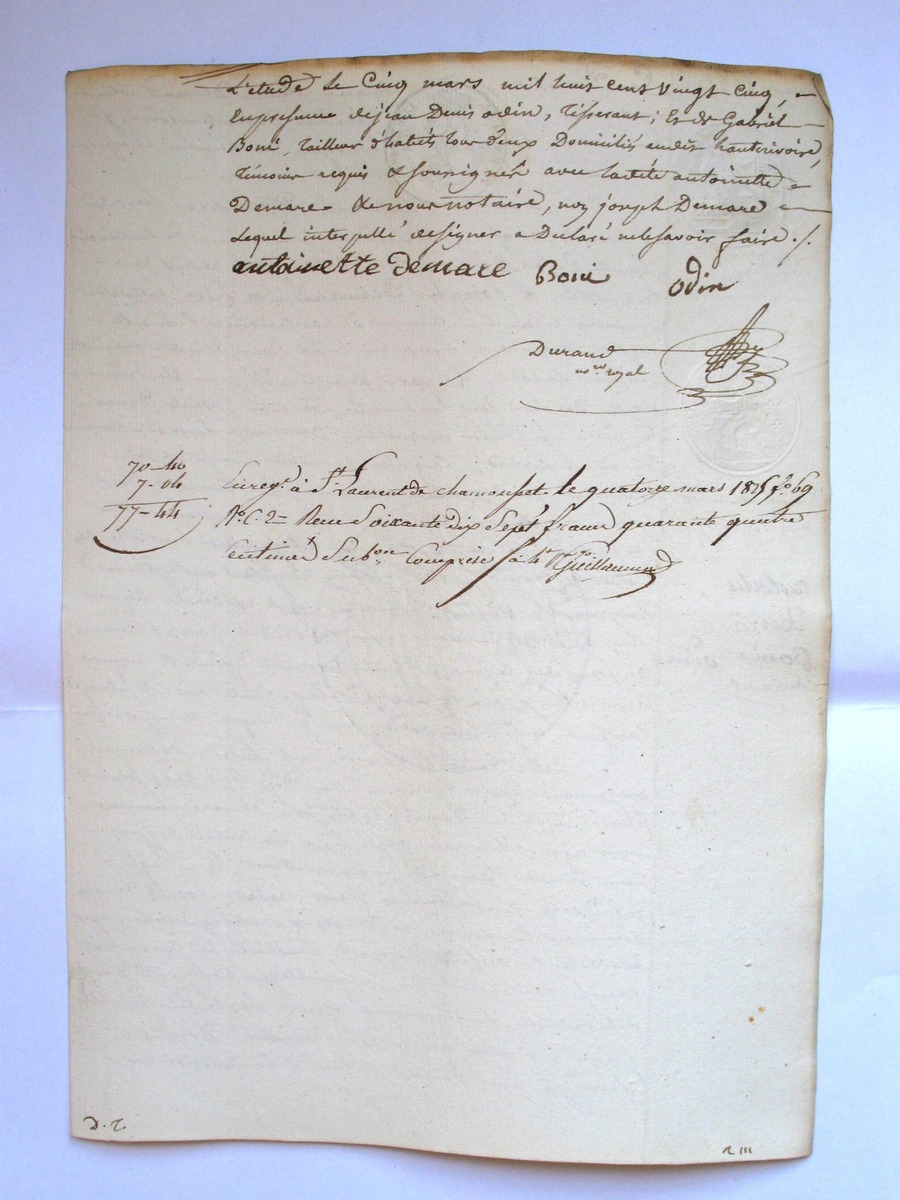 L'etude le Cinq mars mil huit cent vingt Cinq,
En presence de jean Denis odin, Tisserant; Et de Gabriel
Boni, tailleur d'habits tous deux Domiciliés audit hauterivoire,
témoins requis & soussignés avec ladite antoinette
Demare & nous notaire, non joseph Demare
Lequel interpellé de signer a Declaré ne le savoir faire ./.
antoinette demare Boni odin
Durand
nore royal
70-40
7-04
77-44
Enregé à St. Laurent de chamousset le quatorze mars 1825 fo 69
Ro C. 2= Recu Soixante dix Sept francs quarante quatre
Centimes Subon Comprise Guillaumond
D. T.